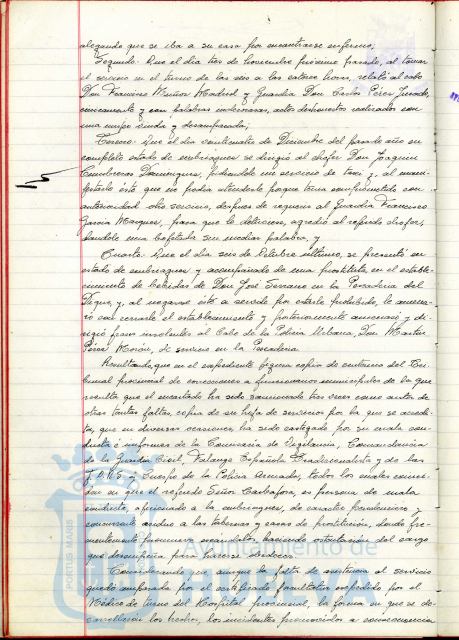 alegando que se iba a su casa por encontrarse enfermo;
Segundo: Que el día tres de Noviembre próximo pasado, al tomar
el servicio en el turno de las seis a las catorce horas, relató al cabo
Don Francisco Muñoz Madrid y Guardia Don Carlos Pérez Jurado,
cínicamente y con palabras indecorosas, actos deshonestos realizados con
una mujer viuda y desamparada;
Tercero: Que el día veintinueve de Diciembre del pasado año en
completo estado de embriaguez se dirigió al chofer Don Joaquín
Cumbreras Domínguez, pidiéndole un servicio de taxi y, al mani-
festarle éste que no podía atenderle porque tenía comprometido con
anterioridad otro servicio, después de requerir al Guardia Francisco
García Márquez, para que le detuviese, agredió al referido chofer,
dándole una bofetada sin mediar palabra, y
Cuarto: Que el día seis de Octubre último, se presentó en
estado de embriaguez y acompañado de una prostituta, en el estable-
cimiento de bebidas de Don José Serrano en la Pescadería del
Dique, y, al negarse éste a servirle por estarle prohibido, le amena-
zó con cerrarle el establecimiento y posteriormente amenazó y di-
rigió frases insultantes al Cabo de la Policía Urbana, Don Martín
Pérez Morón, de servicio en la Pescadería.
Resultando, que en el expediente figura copia de sentencia del Tri-
bunal provincial de correcciones a funcionarios municipales de la que
resulta que el encartado ha sido sancionado tres veces como autor de
otras tantas faltas, copia de su hoja de servicios por la que se acredi-
ta, que en diversas ocasiones ha sido castigado por su mala con-
ducta é informes de la Comisaría de Vigilancia, Comandancia
de la Guardia Civil, Falange Española Tradicionalista y de las
J.O.N.S. y Cuerpo de la Policía Armada, todos los cuales coinci-
den en que el referido Señor Carbajosa, es persona de mala
conducta, aficionado a la embriaguez, de carácter pendenciero y
concurrente asiduo a las tabernas y casas de prostitución, donde fre-
cuentemente promueve escándalos, haciendo ostentación del cargo
que desempeña para hacerse obedecer.
Considerando que aunque la falta de asistencia al servicio
quedó amparada por el certificado facultativo expedido por el
Médico de turno del Hospital provincial, la forma en que se de-
sarrollaron los hechos, los incidentes promovidos a consecuencia
PORTUS MARIS
Ayuntamiento de